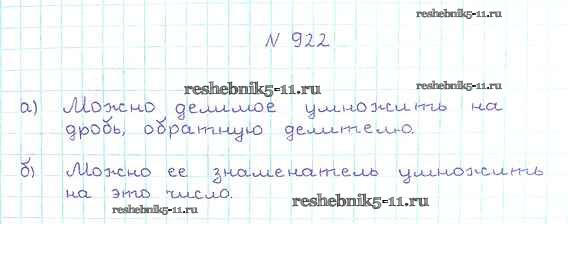 reshebnik5-11.ru
N 922
reshebnik5-11.ru
reshebnik5-11.ru
а) Можно делимое умножить на
дробь, обратную делителю.
б) Можно ее знаменатель умножить
на это число.
reshebnik5-11.ru
reshebnik5-11.ru